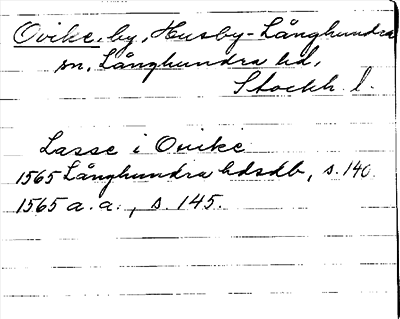 Ovike, by, Husby-Långhundra
sn, Långhundra hd,
Stockh. l.
Lasse i Ovike
1565 Långhundra hdsdb, s. 140.
1565 a. a., s. 145.